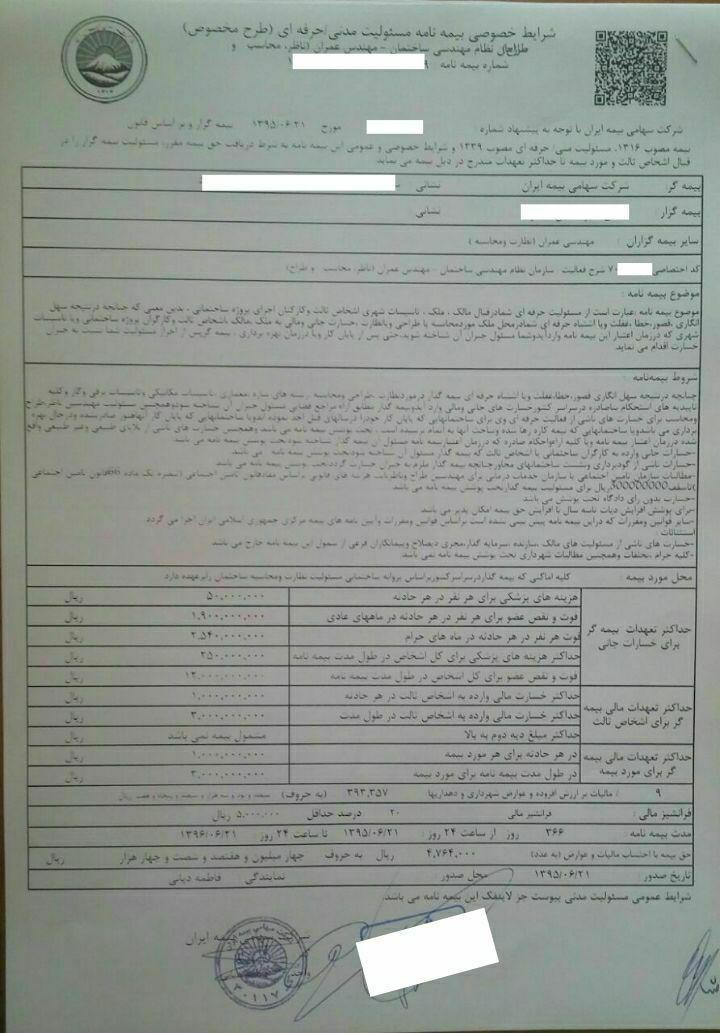 شرایط خصوصی بیمه نامه مسئولیت مدنی/حرفه ای (طرح مخصوص)
سازمان نظام مهندسی ساختمان - مهندس عمران (ناظر، محاسب و
شماره بیمه نامه
شرکت سهامی بیمه ایران با توجه به پیشنهاد شماره : مورخ ۱۳۹۵/۰۶/۲۱ بیمه گزار و بر اساس قانون
بیمه مصوب ۱۳۱۶، مسئولیت مدنی/ حرفه ای مصوب ۱۳۳۹ و شرایط خصوصی و عمومی این بیمه نامه به شرط دریافت حق بیمه مقرر، مسئولیت بیمه گزار را در
قبال اشخاص ثالث و مورد بیمه تا حداکثر تعهدات مندرج در ذیل بیمه می نماید
بیمه گر : شرکت سهامی بیمه ایران نشانی
بیمه گزار نشانی
سایر بیمه گزاران : مهندسی عمران (نظارت ومحاسبه )
کد اختصاصی شرح فعالیت - سازمان نظام مهندسی ساختمان - مهندس عمران (ناظر، محاسب و طراح)
موضوع بیمه نامه :
موضوع بیمه نامه :عبارت است از مسئولیت حرفه ای شمادرقبال مالک ، ملک ، تاسیسات شهری اشخاص ثالث وکارکنان اجرای پروژه ساختمانی . بدین معنی که چنانچه درنتیجه سهل
انگاری ،قصور،خطا،غفلت ویا اشتباه حرفه ای شمادرمحل ملک موردمحاسبه یا طراحی ویانظارت ،خسارت جانی ومالی به ملک ،مالک یااشخاص ثالث وکارگران پروژه ساختمانی ویا تاسیسات
شهری که درزمان اعتبار این بیمه نامه واردآیدوشما مسئول جبران آن شناخته شوید،حتی پس از پایان کار ویا درزمان بهره برداری ، بیمه گرپس از احراز مسئولیت شما نسبت به جبران
خسارت اقدام می نماید
شروط بیمه‌نامه
چنانچه درنتیجه سهل انگاری قصور،خطا،غفلت ویا اشتباه حرفه ای بیمه گذار درموردنظارت ،طراحی ومحاسبه رشته های سازه ،معماری ،تاسیسات مکانیکی وتاسیسات برقی وگاز وکلیه
تاییدیه های استحکام بناصادره درسراسر کشورخسارت های جانی ومالی وارد آیدوبیمه گذار مطابق آراء مراجع قضایی مسئول جبران آن شناخته شود
-خسارات جانی وارده به کارگران ساختمانی یا اشخاص ثالث که بیمه گذار مسئول آن شناخته شود،تحت پوشش بیمه نامه می باشد
-خسارات ناشی از گودبرداری ونشست ساختمانهای مجاورچنانچه بیمه گذار ملزم به جبران خسارت گردد،تحت پوشش بیمه نامه می باشد
-خسارت بدون رای دادگاه تحت پوشش می باشد
-برای پوشش افزایش دیات تاسه سال با افزایش حق بیمه امکان پذیر می باشد
-سایر قوانین ومقررات که دراین بیمه نامه پیش بینی نشده است براساس قوانین ومقررات وآیین نامه های بیمه مرکزی جمهوری اسلامی ایران اجرا می گردد
استثنائات
-خسارت های ناشی از مسئولیت های مالک ،سازنده ،سرمایه گذار،مجری ذیصلاح وپیمانکاران فرعی از شمول این بیمه نامه خارج می باشد
-کلیه جرائم ،تخلفات وهمچنین مطالبات شهرداری تحت پوشش بیمه نامه نمی باشد.
محل مورد بیمه : کلیه اماکنی که بیمه گذاردرسراسرکشوربراساس پروانه ساختمانی مسئولیت نظارت ومحاسبه ساختمان رابرعهده دارد
حداکثر تعهدات بیمه گر برای خسارات جانی
هزینه های پزشکی برای هر نفر در هر حادثه ۵۰،۰۰۰،۰۰۰ ریال
فوت و نقص عضو برای هر نفر در هر حادثه در ماههای عادی ۱،۹۰۰،۰۰۰،۰۰۰ ریال
فوت هر نفر در هر حادثه در ماه های حرام ۲،۵۴۰،۰۰۰،۰۰۰ ریال
حداکثر هزینه های پزشکی برای کل اشخاص در طول مدت بیمه نامه ۲۵۰،۰۰۰،۰۰۰ ریال
فوت و نقص عضو برای کل اشخاص در طول مدت بیمه نامه ۱۲،۰۰۰،۰۰۰،۰۰۰ ریال
حداکثر تعهدات مالی بیمه گر برای اشخاص ثالث
حداکثر خسارت مالی وارده به اشخاص ثالث در هر حادثه ۱،۰۰۰،۰۰۰،۰۰۰ ریال
حداکثر خسارت مالی وارده به اشخاص ثالث در طول مدت ۳،۰۰۰،۰۰۰،۰۰۰ ریال
حداکثر مبلغ دیه دوم به بالا مشمول بیمه نمی باشد ریال
حداکثر تعهدات مالی بیمه گر برای مورد بیمه
در هر حادثه برای هر مورد بیمه ۱،۰۰۰،۰۰۰،۰۰۰ ریال
در طول مدت بیمه نامه برای مورد بیمه ۳،۰۰۰،۰۰۰،۰۰۰ ریال
۹ ٪ مالیات بر ارزش افزوده و عوارض شهرداری و دهداریها ۳۹۳،۳۵۷ (به حروف) سیصد و نود و سه هزار و سیصد و پنجاه و هفت ریال
فرانشیز مالی : فرانشیز مالی ۲۰ درصد حداقل ۵،۰۰۰،۰۰۰ ریال
مدت بیمه نامه : ۳۶۶ روز از ساعت ۲۴ روز : ۱۳۹۵/۰۶/۲۱ تا ساعت ۲۴ روز : ۱۳۹۶/۰۶/۲۱
حق بیمه با احتساب مالیات و عوارض (به عدد) ۴،۷۶۴،۰۰۰ ریال به حروف چهار میلیون و هفتصد و شصت و چهار هزار ریال
تاریخ صدور : ۱۳۹۵/۰۶/۲۱ محل صدور نمایندگی فاطمه دیانی
شرایط عمومی مسئولیت مدنی پیوست جز لاینفک این بیمه نامه می باشد.
بیمه ایران
۳۰۱۱۷